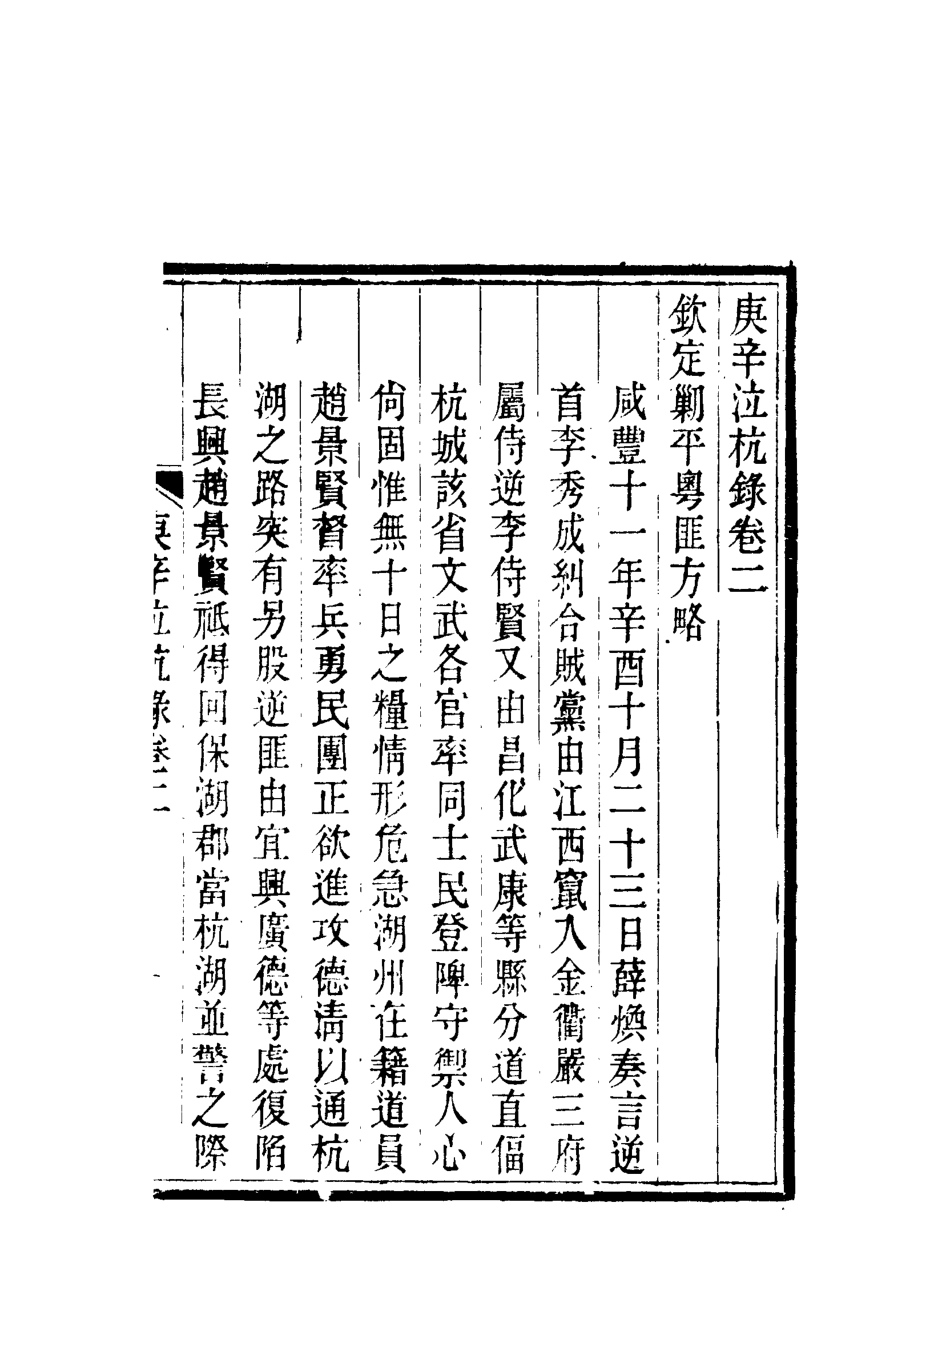 庚辛泣杭錄卷二
欽定剿平粵匪方略
咸豐十一年辛酉十月二十三日薛煥奏言逆
首李秀成糾合賊黨由江西竄入金衢嚴三府
屬侍逆李侍賢又由昌化武康等縣分道直偪
杭城該省文武各官率同士民登陴守禦人心
尙固惟無十日之糧情形危急湖州在籍道員
趙景賢督率兵勇民團正欲進攻德淸以通杭
湖之路突有另股逆匪由宜興廣德等處復陷
長興趙景賢祗得回保湖郡當杭湖並警之際
庚辛泣杭錄卷二